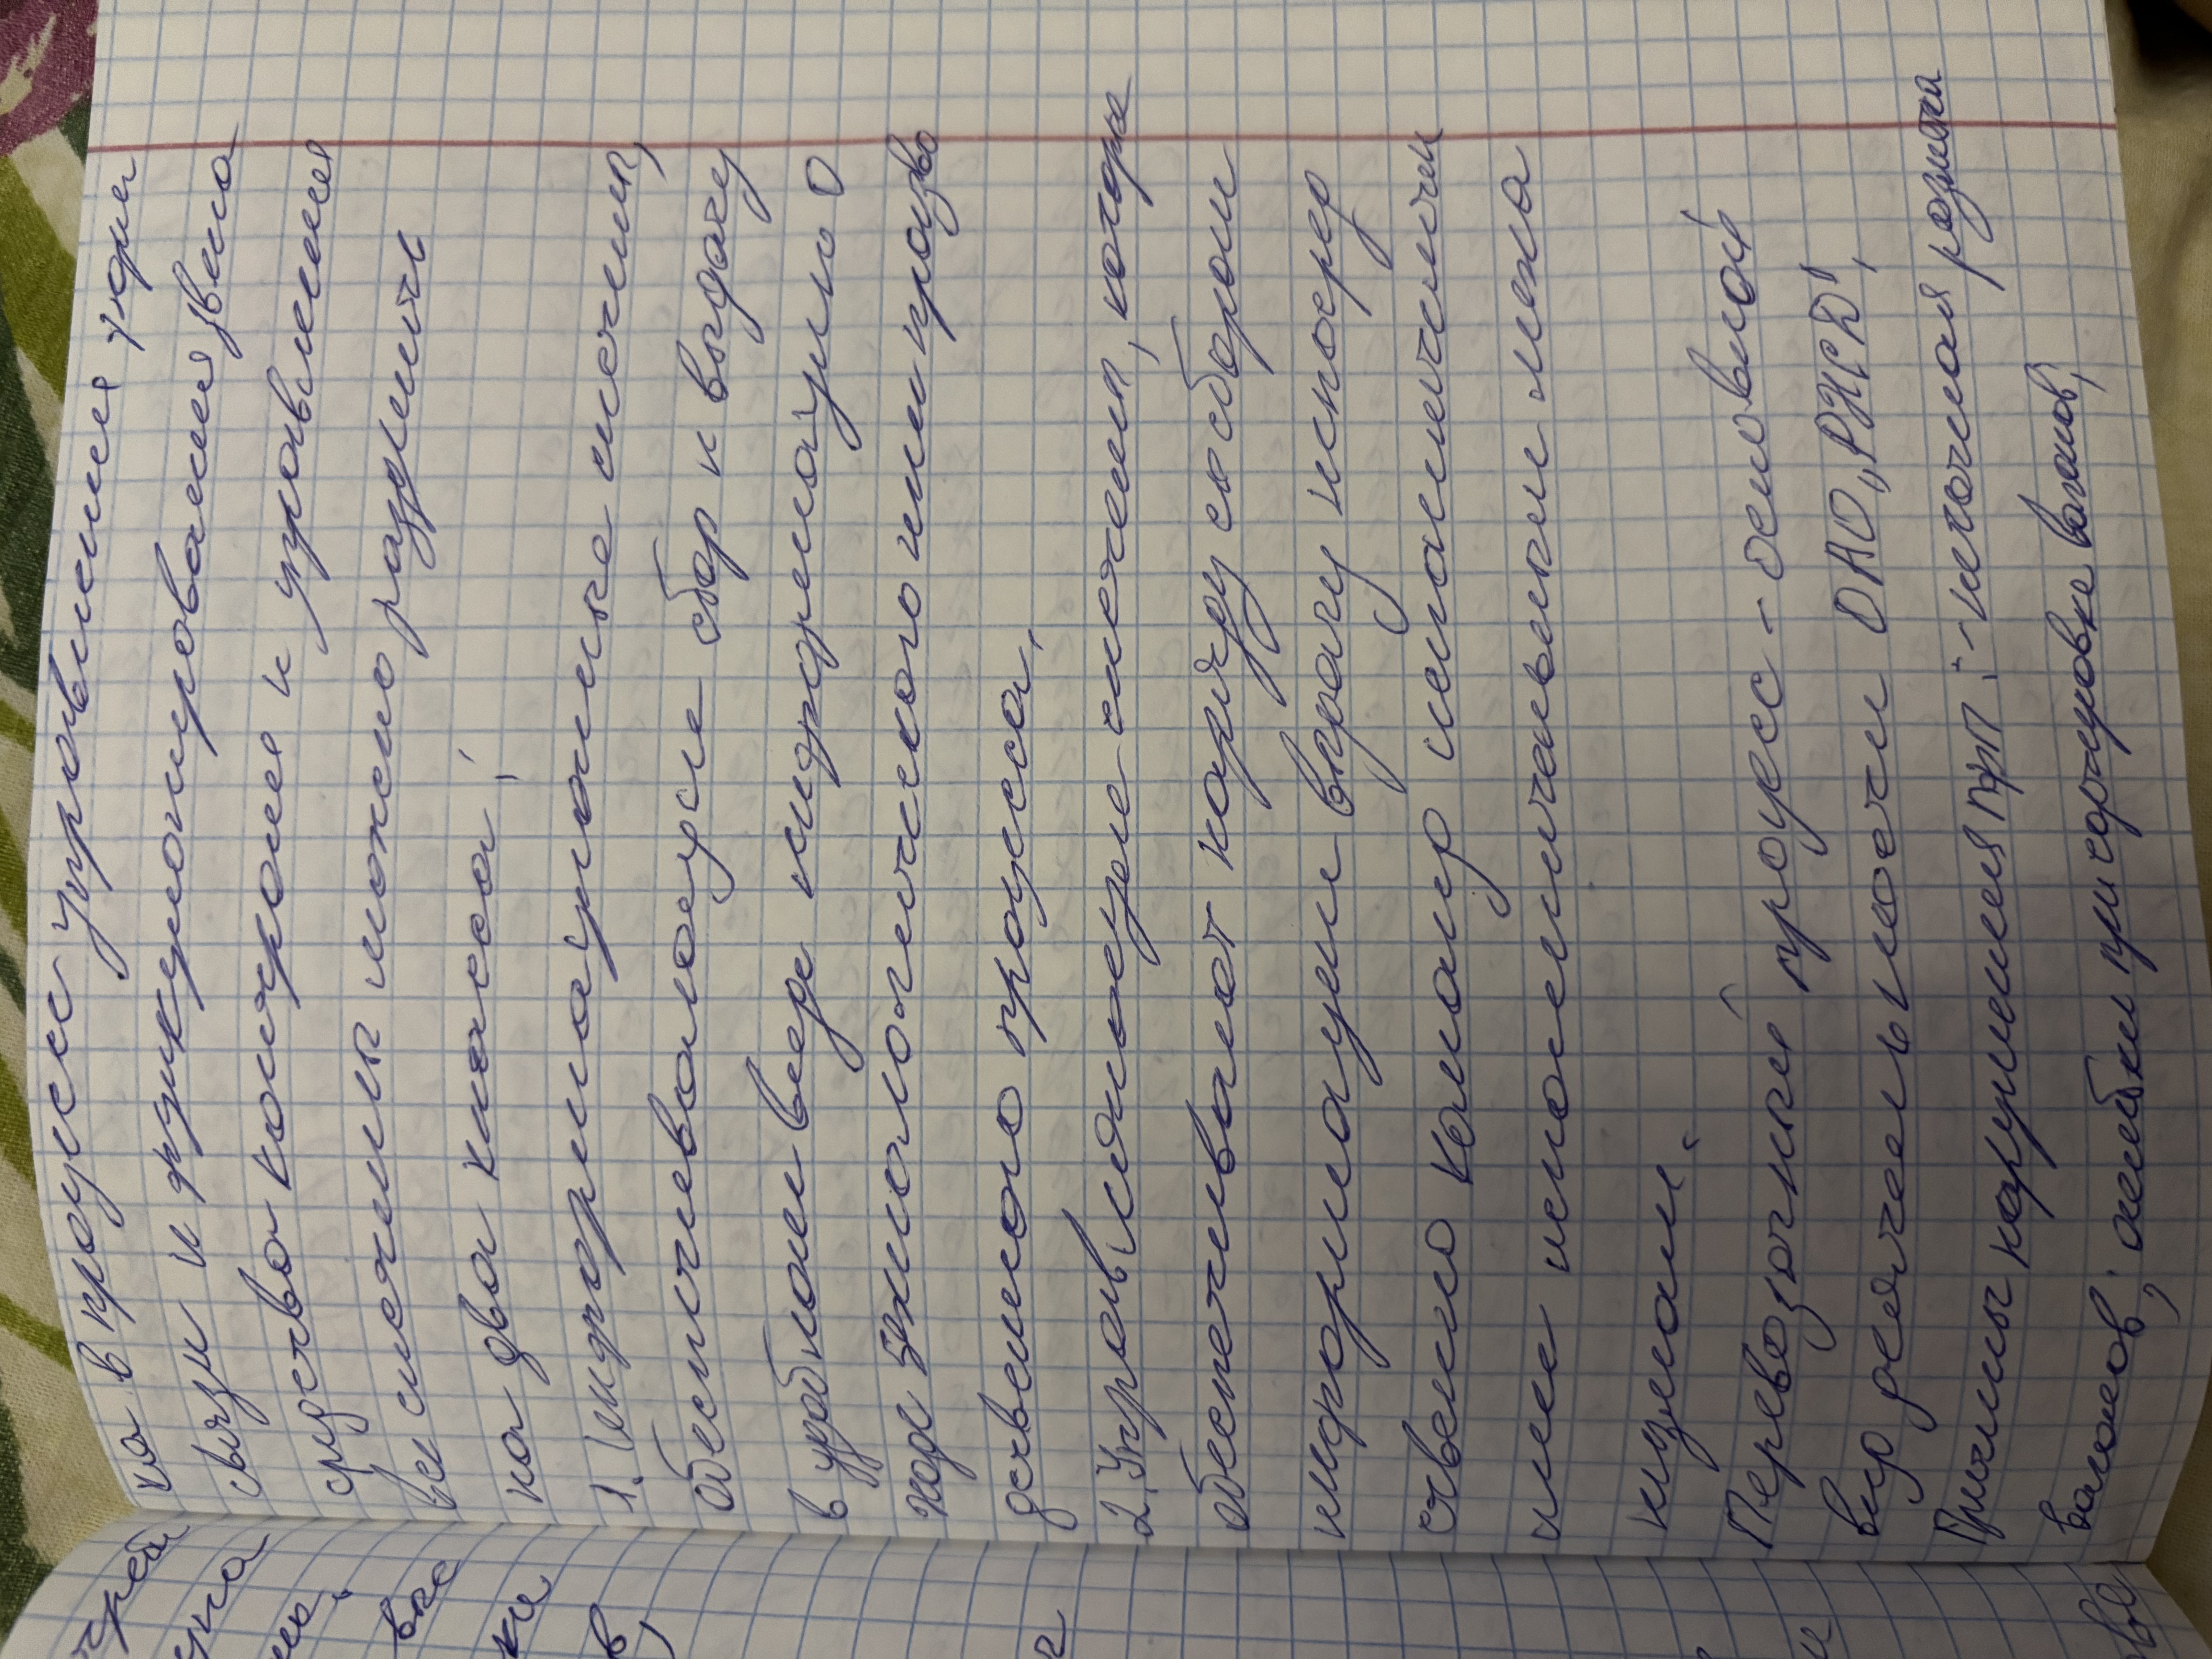 на в процесс управления упра
связи и функционирования звена
средства контроля и управления
все системы можно разделить
на два класса:
1. Информационные системы,
обеспечивающие сбор и выдачу
в удобном виде информацию о
ходе технологического или произво
дственного процесса.
2. Управляющие системы, которые
обеспечивают наряду со сбором
информации выдачу непосред
ственно команд исполнителям
или исполнительным меха
низмам.
Перевозочный процесс - основной
вид деятельности ОАО "РЖД",
Причины нарушения ПФП: - неточная разметка
вагонов; ошибки при сортировке вагонов,